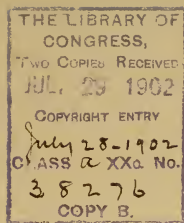 THE LIBRARY OF
CONGRESS,
TWO COPIES RECEIVED
JUL. 29 1902
COPYRIGHT ENTRY
July 28-1902
CLASS a XXc. No.
38276
COPY B.